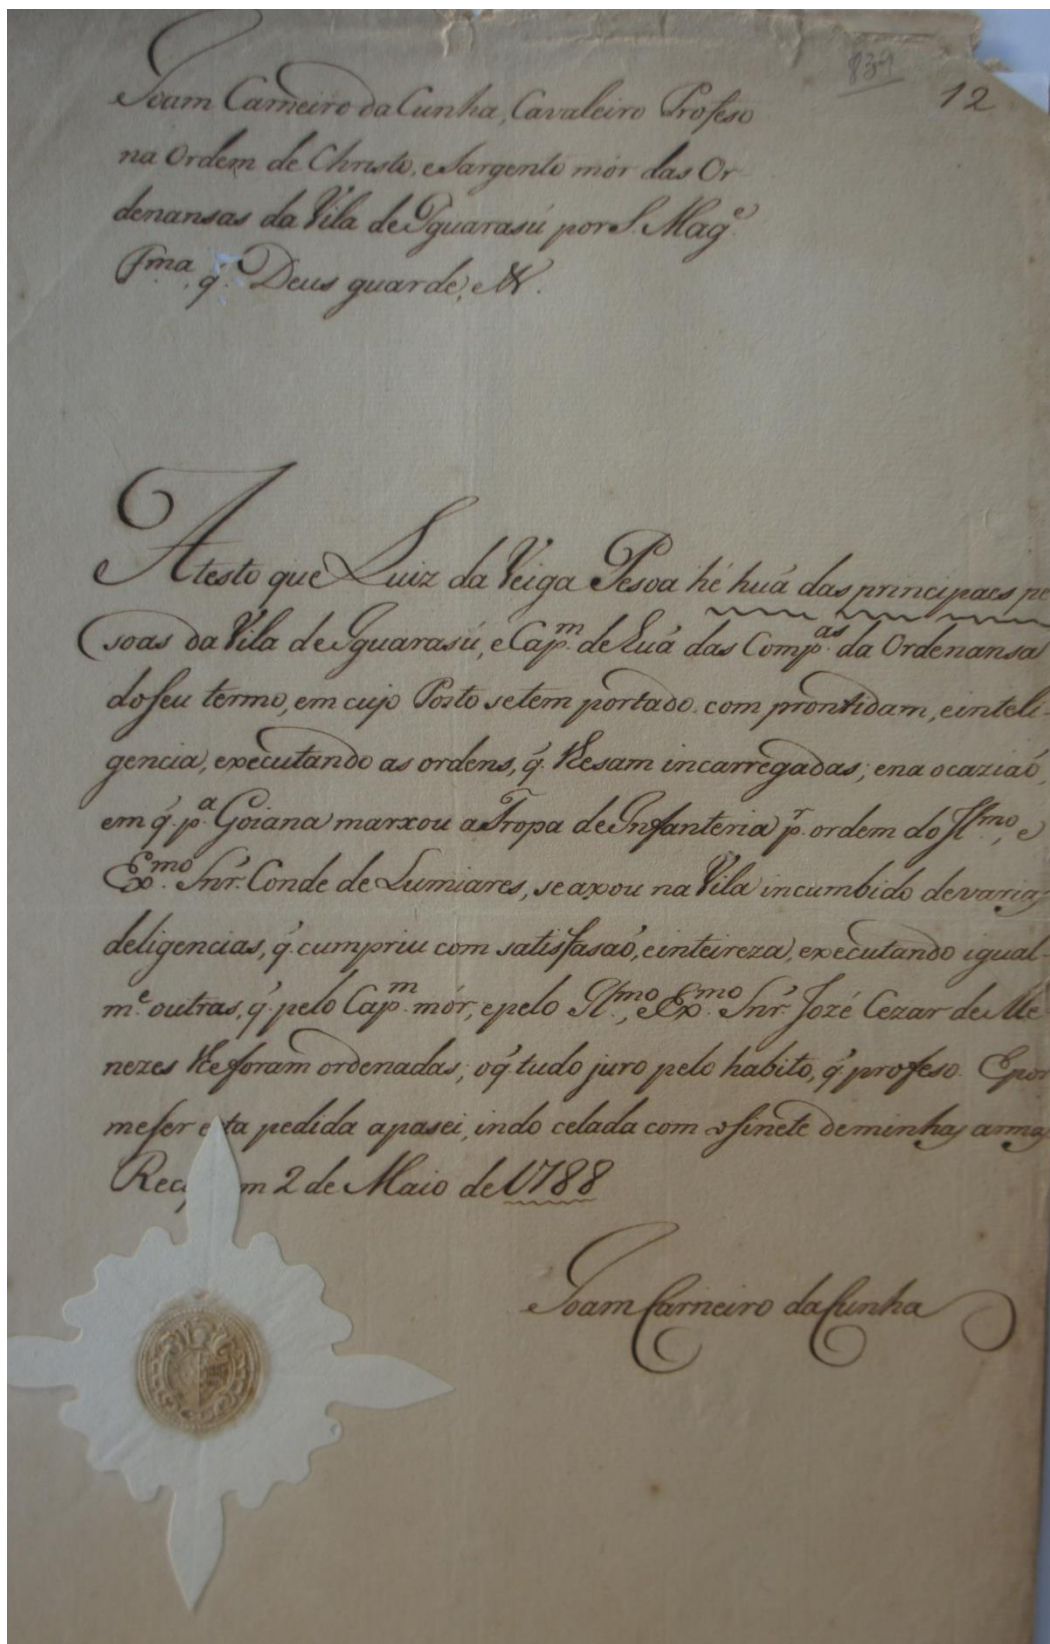 839
12
Joam Carneiro da Cunha, Cavaleiro Profeso
na Ordem de Christo, e Sargento mór das Or
denansas da Vila de Iguarasú por S. Mag.e
F.ma, q̃. Deus guarde, &.
Atesto que Luiz da Veiga Pesoa hé huá das principaes pe
soas da Vila de Iguarasú, e Cap.m de huá das Comp.as da Ordenansa
do seu termo, em cujo Posto se tem portado com prontidam, e inteli-
gencia, executando as ordens, q̃. lhe sam incarregadas; e na ocaziaõ,
em q̃. p.a Goiana marxou a Tropa de Infanteria p.r ordem do Il.mo, e
Ex.mo Snr. Conde de Lumiares, se axou na Vila incumbido de varias
deligencias, q̃. cumpriu com satisfasaõ, e inteireza, executando igual-
m.e outras, q̃. pelo Cap.m mór, e pelo Il.mo, e Ex.mo Snr. Jozé Cezar de Me
nezes lhe foram ordenadas; o q̃ tudo juro pelo habito, q̃ profeso. E por
me ser esta pedida a pasei, indo celada com o sinete de minhas armas
Rec em 2 de Maio de 1788
Joam Carneiro da Cunha